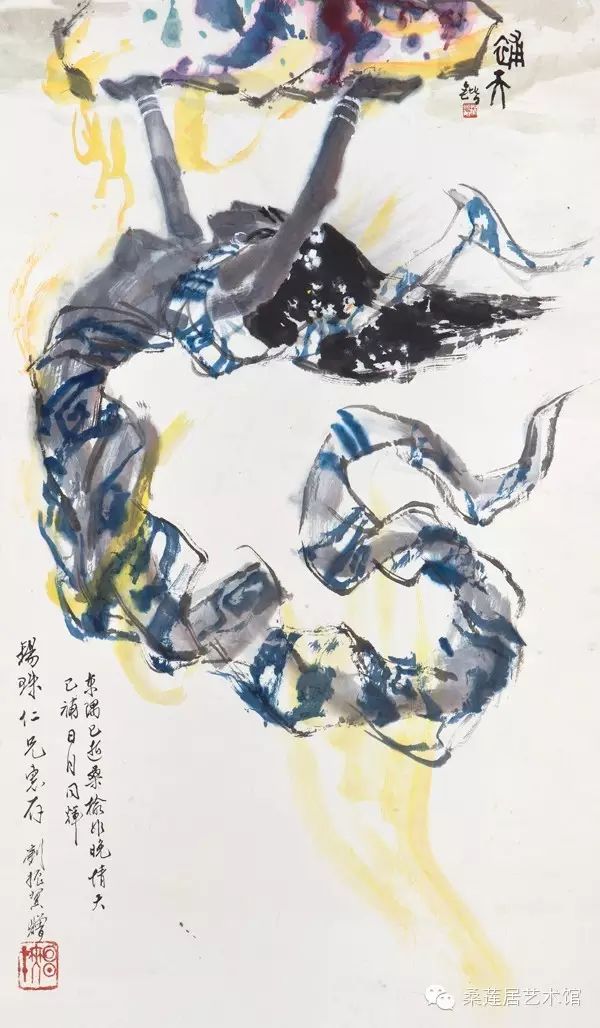 補天
东隅已逝桑榆非晚情天
已補日月同輝
锡珠仁兄惠存
桑莲居艺术馆